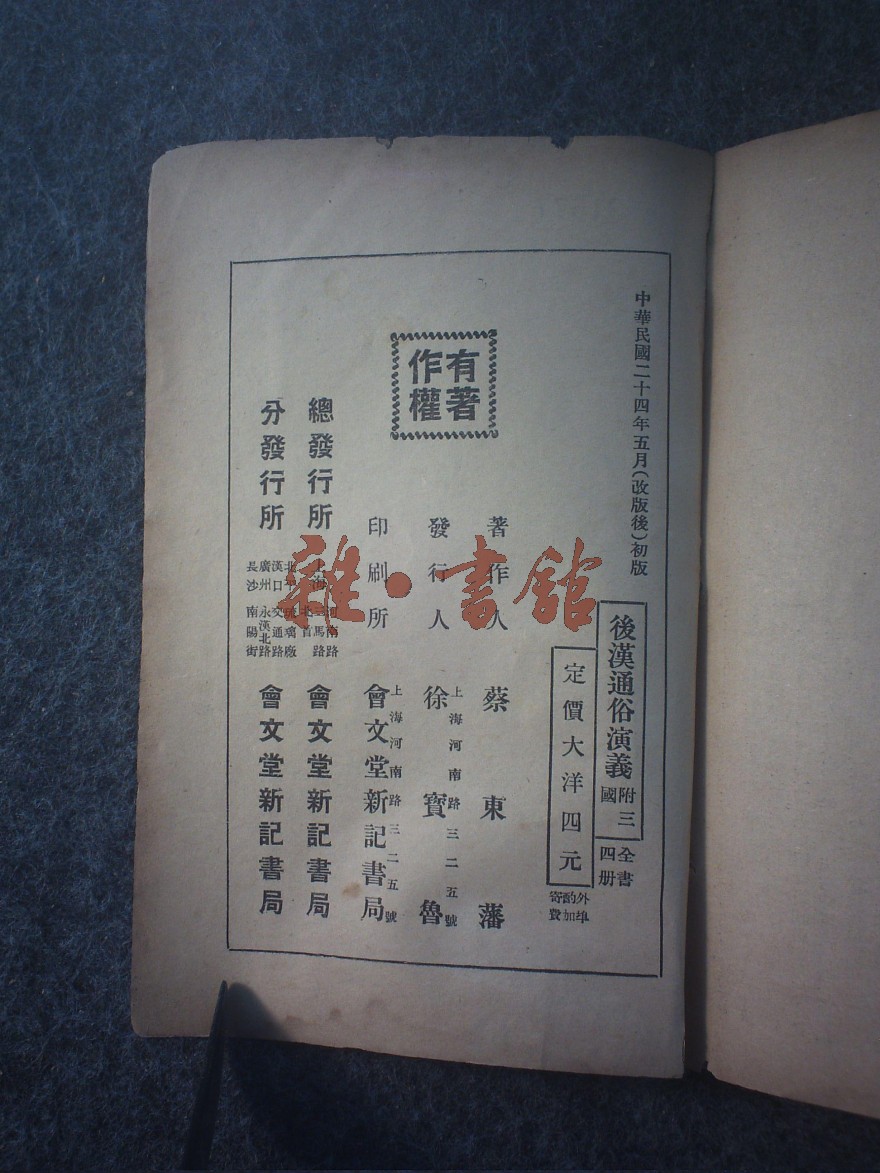 中華民國二十四年五月(改版後)初版
後漢通俗演義
附三國
全書四册
定價大洋四元
外埠酌加寄費
著作人 蔡東藩
發行人 上海河南路三二五號 徐寶魯
印刷所 上海河南路三二五號 會文堂新記書局
有著作權
總發行所 上海 河南路 三馬路 北首 會文堂新記書局
分發行所 北平 琉璃廠 漢口 交通路 廣州 永漢北路 長沙 南陽街 會文堂新記書局
雜·書館